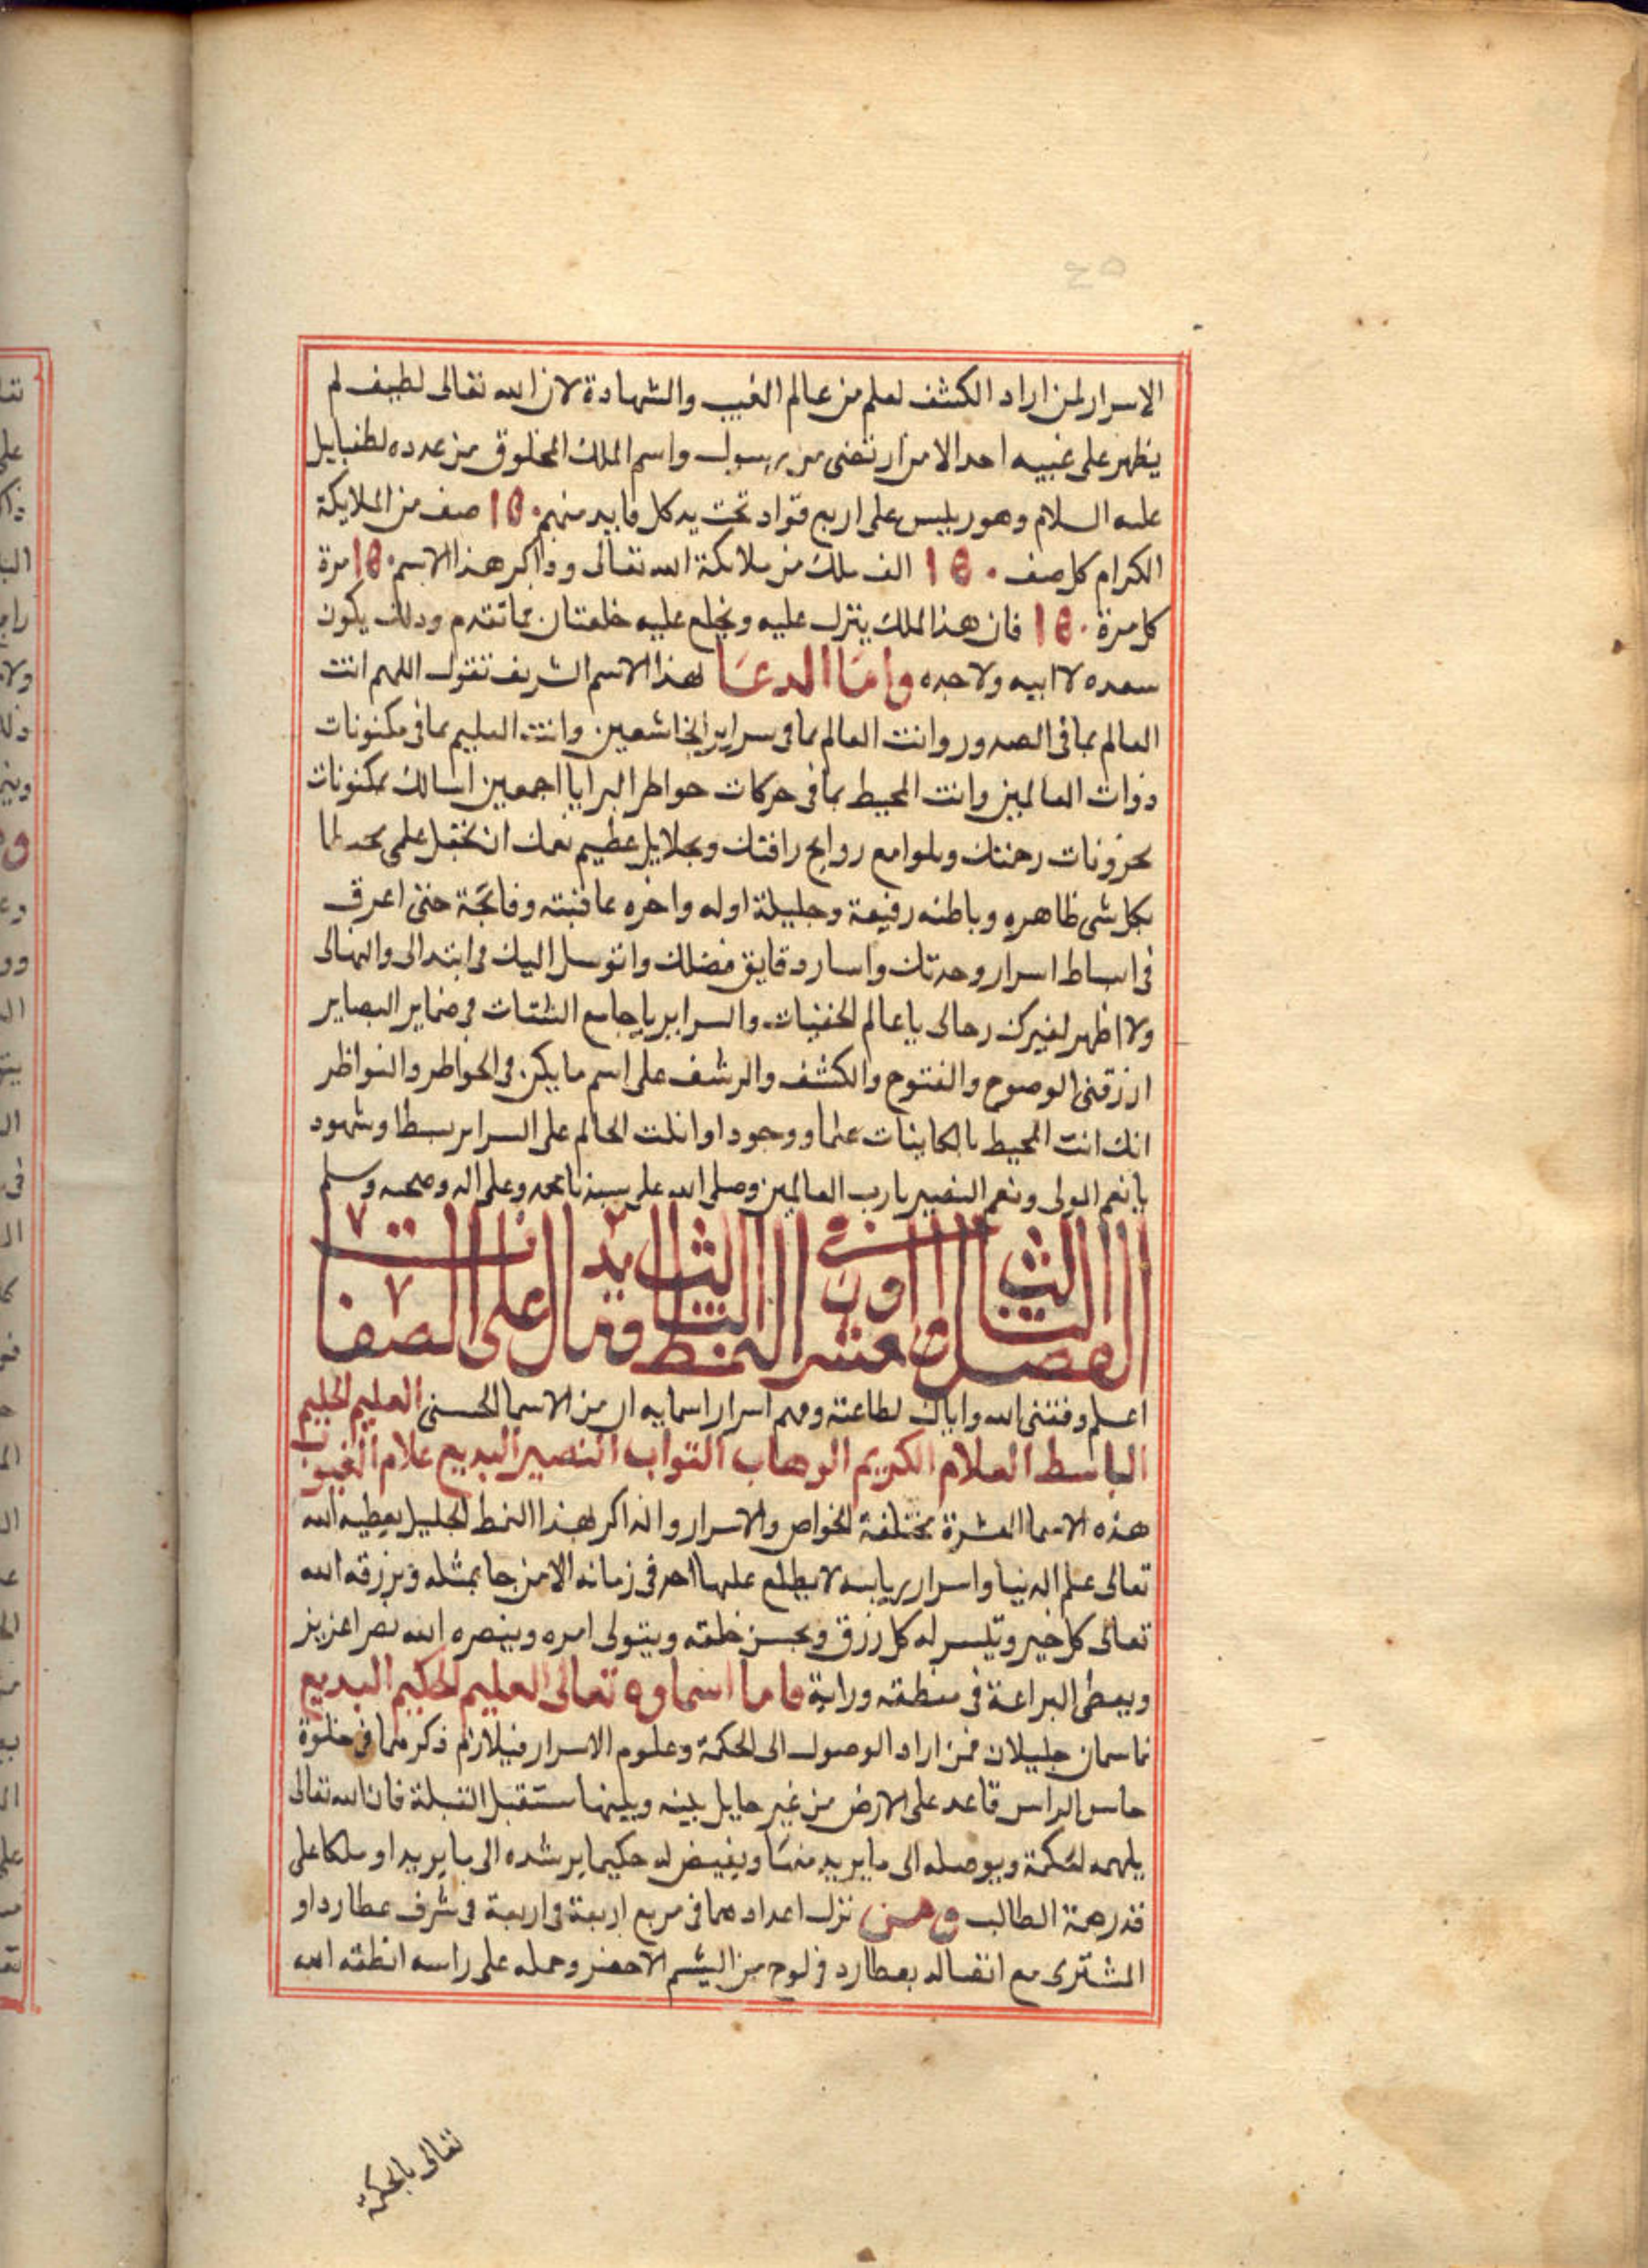 الاسرار لمن اراد الكشف لعلم من عالم الغيب والشهادة لان الله تعالى لطيف لم
يظهر على غيبه احد الا من ارتضى من رسول واسم الملك المخلوق من عدده لطيايل
عليه السلام وهو رييس على اربع قواد تحت يد كل قايد منهم صف من الملايكة
الكرام كل صف الف ملك من ملايكة الله تعالى وذاكر هذا الاسم مرة
كل مرة فان هذا الملك ينزل عليه ويخلع عليه خلعتان مما تقدم وذلك يكون
سعده لا ابيه ولا جده واما الدعا لهذا الاسم الشريف تقول اللهم انت
العالم بما فى الصدور وانت العالم بما فى سراير الخاشعين وانت العليم بما فى مكنونات
ذوات العالمين وانت المحيط بما فى حركات خواطر البرايا اجمعين اسالك بمكنونات
مخزونات رحمتك وبلوامع روايح رافتك وبجلايل عظيم نعمك ان تجعل علمى محيطا
بكل شى ظاهره وباطنه رفيعة وجليلة اوله واخره عاقبته وفاتحة حتى اعرق
فى اسرار وحدتك دقايق فضلك واتوسل اليك فى ابتداى
ولا اظهر لغيرك رجالى يا عالم الخفيات والسراير يا جامع الشتات فى ضماير البصاير
ارزقنى الوضوح والفتوح والكشف والرشف على اسم ما يكن فى الخواطر والنواظر
انك انت المحيط بالكاينات علما ووجودا وانك انت على السراير بسطا وشهود
يا نعم المولى ونعم النصير يا رب العالمين وصلى الله على سيدنا محمد وعلى اله وصحبه وسلم
الفصل الثالث والعشرون النمط الثالث
اعلم وفقنى الله واياك لطاعته وفهم اسرار اسمايه ان من الاسما الحسنى العليم الحليم
الباسط العلام الكريم الوهاب التواب النصير البديع علام الغيوب
هذه الاسما العشرة مختلفة الخواص والاسرار والذاكر لهذا النمط الجليل يعطيه الله
تعالى علم الدنيا واسرار ربانيه لا يطلع عليها احد فى زمانه الا من جا بمثله ويرزقه الله
تعالى كل خير وتيسر له كل رزق ويحسن خلقه ويتولى امره وينصره الله نصرا عزيز
ويعطى البراعة فى منطقه ورايه فاما اسماوه تعالى العليم الحكيم البديع
فاسمان جليلان فمن اراد الوصول الى الحكمة وعلوم الاسرار فيلازم ذكرهما فى خلوة
حاسر الراس قاعد على الارض من غير حايل بينه وبينها مستقبل القبلة فان الله تعالى
يلهمه الحكمة ويوصله الى ما يريد منها ويفيض له حكيما يرشده الى ما يريد او ملكا على
قدر همة الطالب ومن نزل اعدادهما فى مربع اربعة فى اربعة فى شرف عطارد او
المشترى مع اتصاله بعطارد فى لوح من اليشم الاخضر وحمله على راسه انطقه الله
تعالى بالحكمة